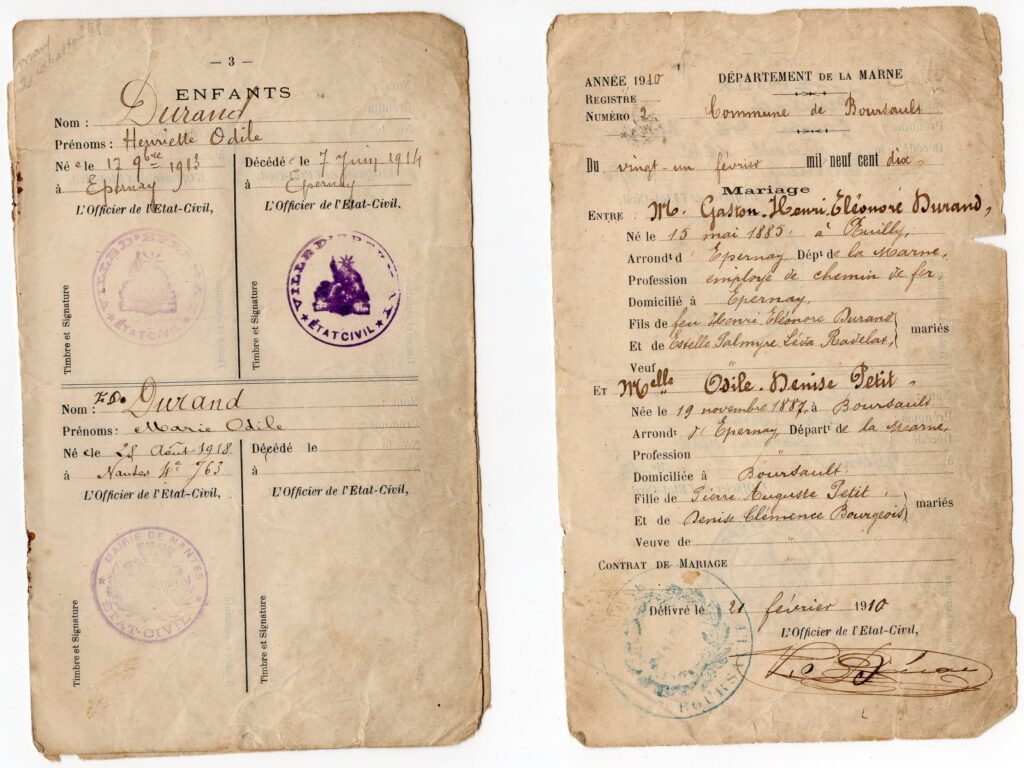 — 3 —
ENFANTS
Nom : Durand
Prénoms : Henriette Odile
Né e le 12 9bre 1913
à Epernay
L'Officier de l'Etat-Civil,
Timbre et Signature
Décédé e le 7 Juin 1914
à Epernay
L'Officier de l'Etat-Civil,
Timbre et Signature
VILLE D'EPERNAY
★ ÉTAT CIVIL ★
Nom : Durand
Prénoms : Marie Odile
Né e le 28 Août 1918
à Nantes 4e 763
L'Officier de l'Etat-Civil,
MAIRIE DE NANTES
ÉTAT-CIVIL
Timbre et Signature
Décédé le
à
L'Officier de l'Etat-Civil,
Timbre et Signature
ANNÉE 1910
REGISTRE
NUMÉRO 2
DÉPARTEMENT DE LA MARNE
Commune de Boursault
Du vingt-un février mil neuf cent dix,
Mariage
ENTRE : M. Gaston-Henri-Eléonore Durand,
Né le 15 mai 1885 à Reuilly,
Arrondt d' Epernay Dépt de la Marne,
Profession employé de chemin de fer
Domicilié à Epernay,
Fils de feu Henri Eléonore Durand
Et de Estelle Palmyre Léva Ravelat, mariés
Veuf
ET Melle Odile-Denise Petit,
Née le 19 novembre 1887, à Boursault
Arrondt d' Epernay, Départt de la Marne,
Profession "
Domiciliée à Boursault
Fille de Pierre Auguste Petit,
Et de Denise Clémence Bourgeois mariés
Veuve de "
CONTRAT DE MARIAGE
Délivré le 21 février 1910
L'Officier de l'Etat-Civil,
BOURSAULT